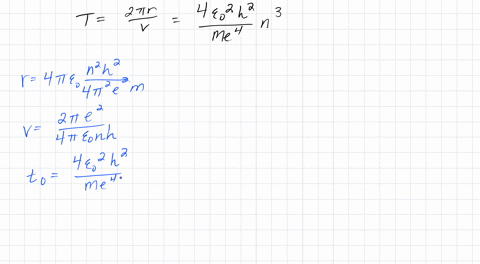 T = 2πr / v = 4 ε₀² h² / me⁴ n³
r = 4πε₀ n²h² / 4π²e²m
v = 2πe² / 4πε₀nh
t₀ = 4ε₀²h² / me⁴.